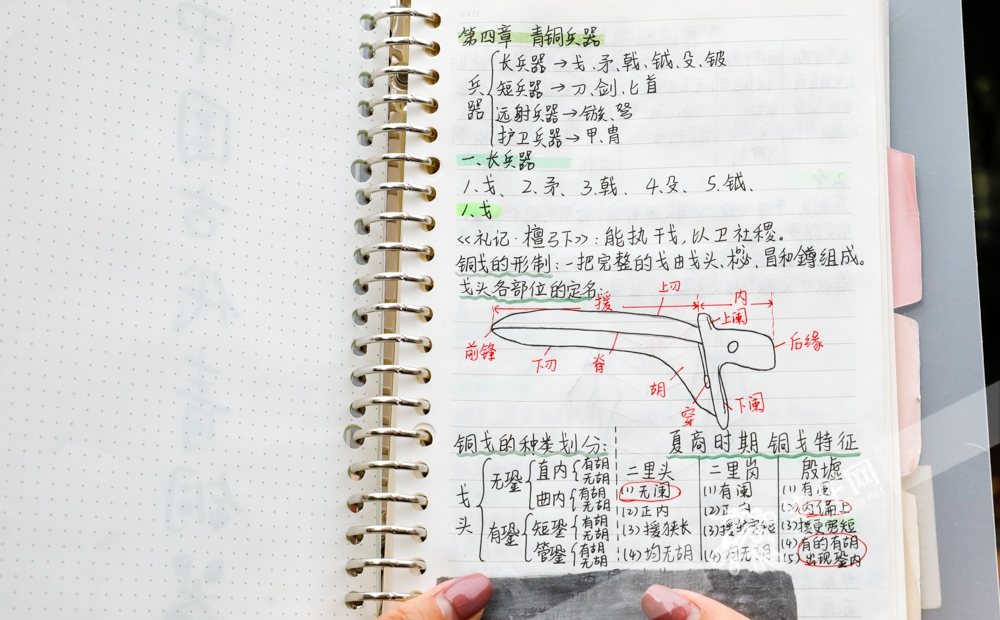 第四章 青铜兵器
兵器
长兵器→戈、矛、戟、钺、殳、铍
短兵器→刀、剑、匕首
远射兵器→镞、弩
护卫兵器→甲、胄
一、长兵器
1.戈、 2.矛、 3.戟、 4.殳、 5.钺、
1.戈
《礼记·檀弓下》:能执干戈,以卫社稷。
铜戈的形制:一把完整的戈由戈头、柲、冒和鐏组成。
戈头各部位的定名:
援
上刃
内
上阑
前锋
下刃
脊
胡
穿
下阑
后缘
铜戈的种类划分:
戈头
无銎
直内
有胡
无胡
曲内
有胡
无胡
有銎
短銎
有胡
无胡
管銎
有胡
无胡
夏商时期铜戈特征
二里头
(1)无阑
(2)正内
(3)援狭长
(4)均无胡
二里岗
(1)有阑
(2)正内
(3)援
宽短
(4)均无胡
殷墟
(1)有阑
(2)内偏上
(3)援更宽短
(4)有的有胡
(5)出现銎内